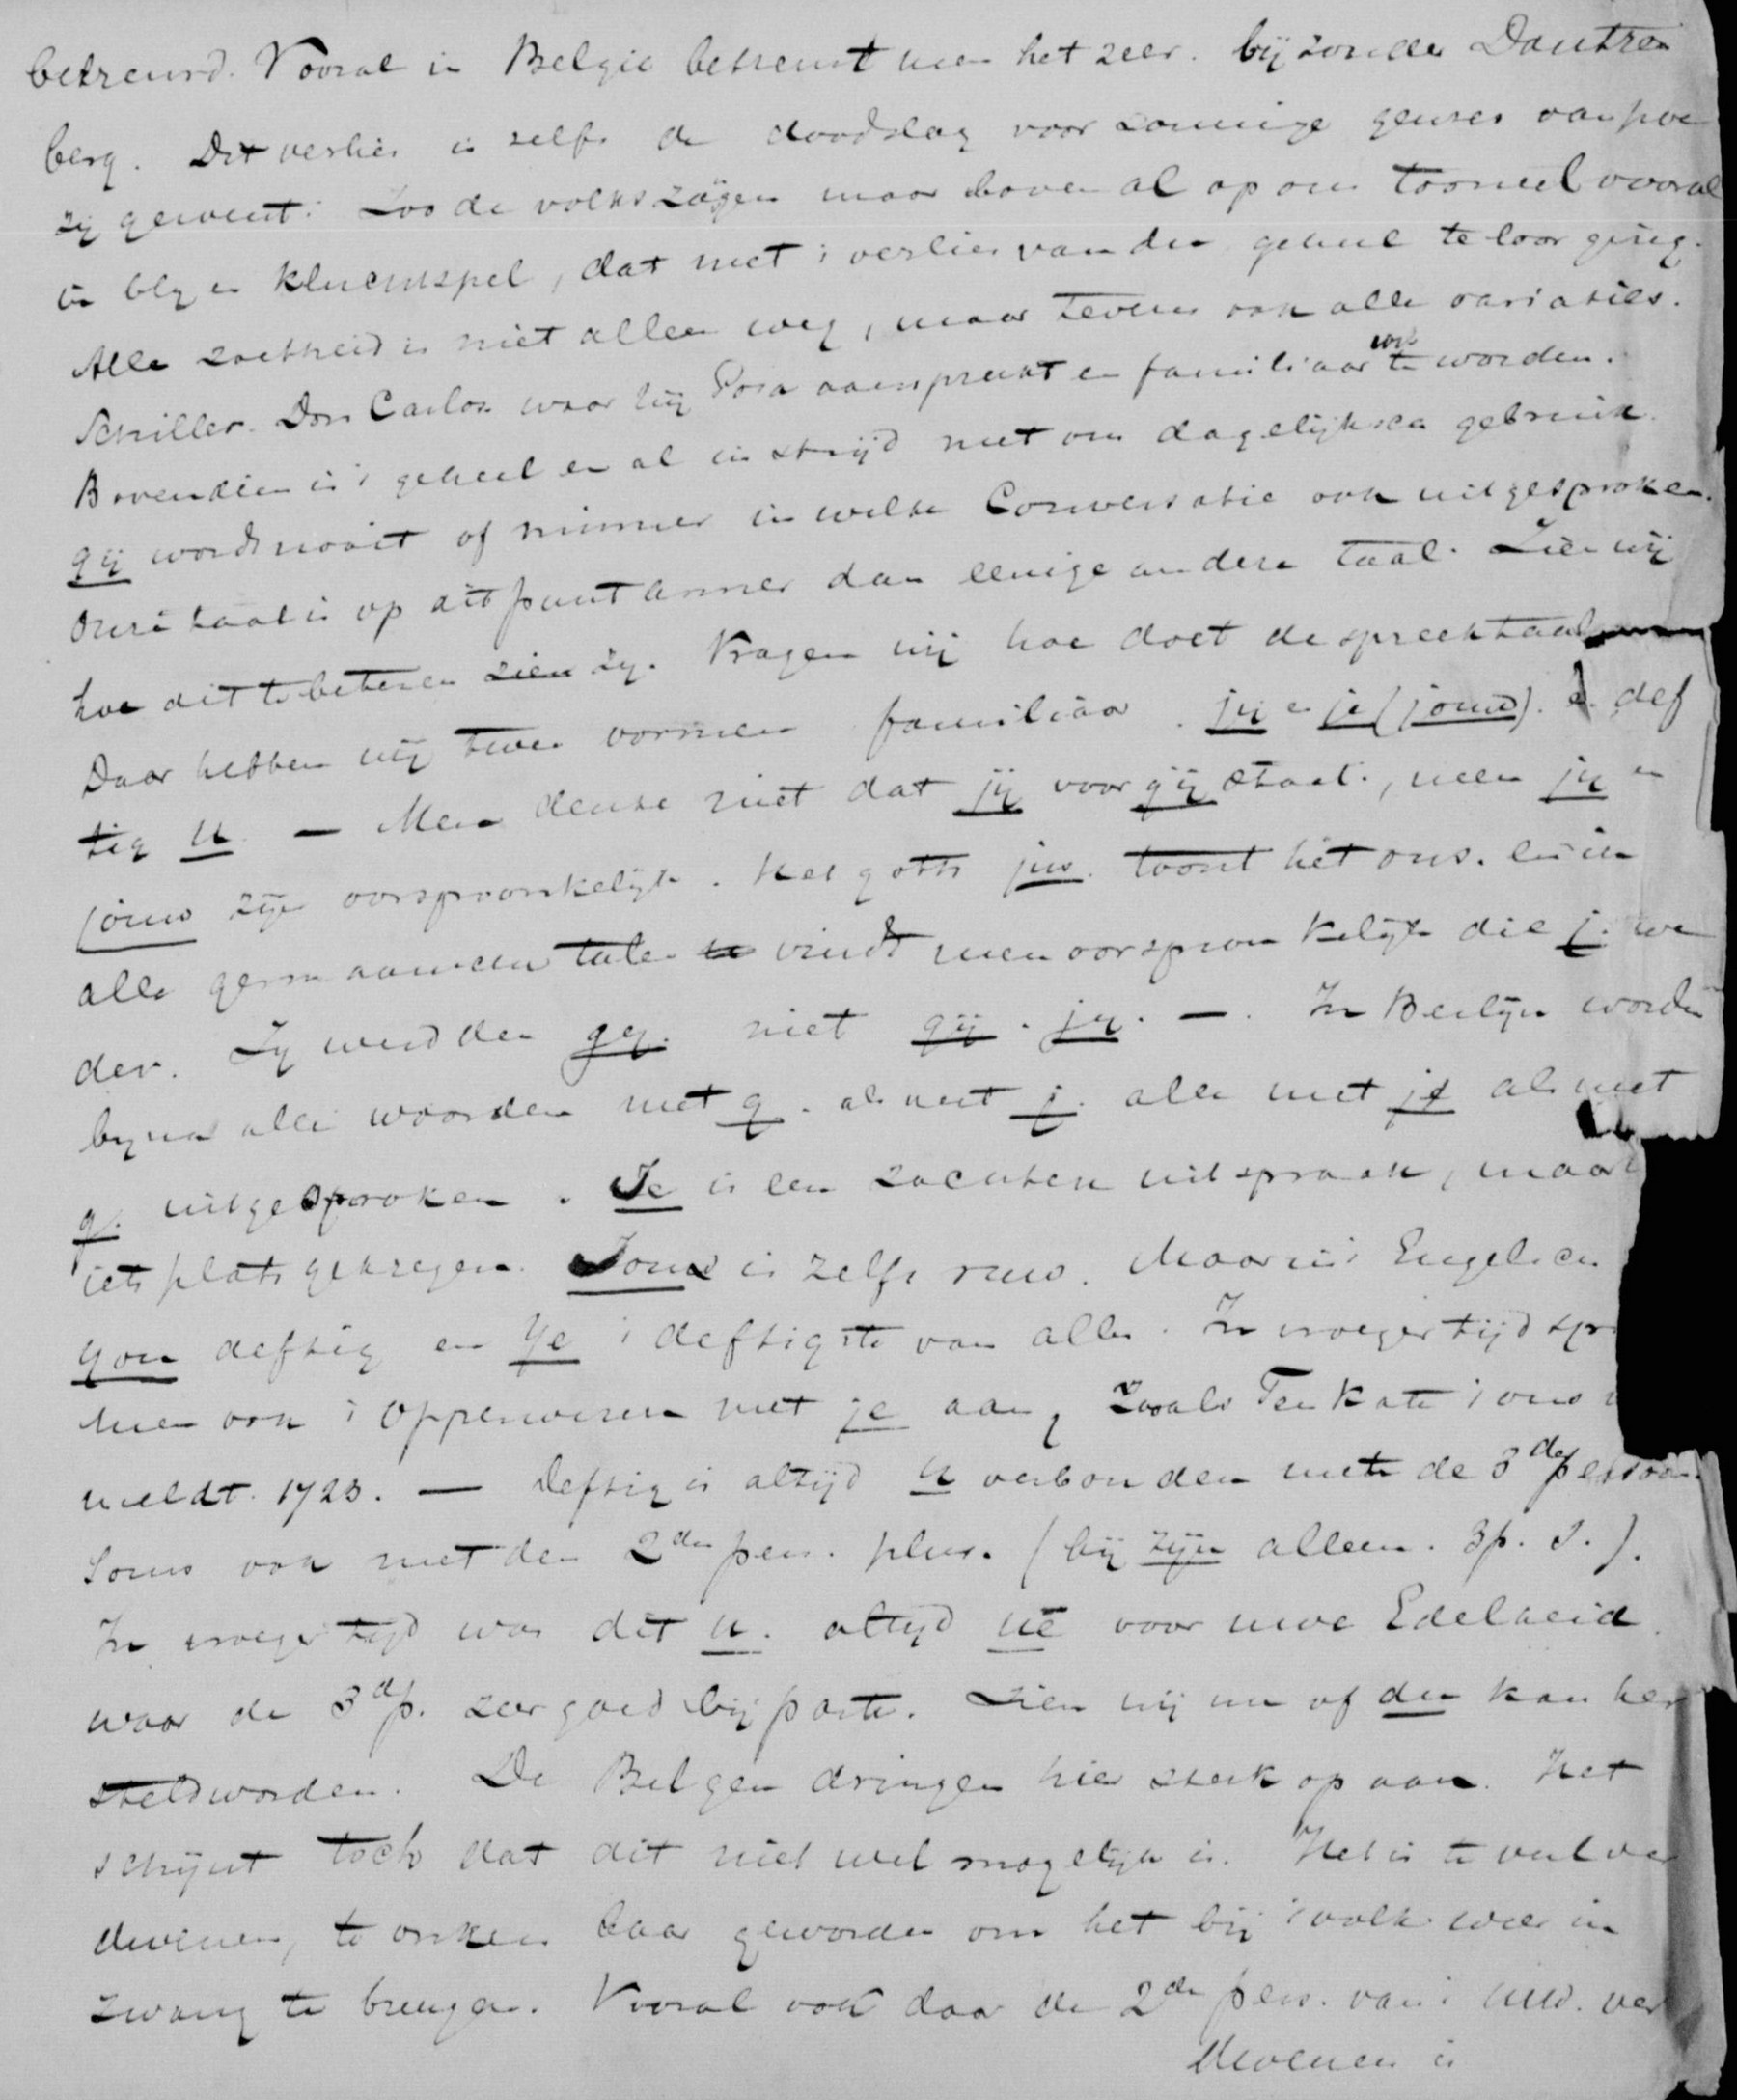 betreurd. Vooral in Belgie betreurt men het zeer. bijzonder Dautzen
berg. Dit verlies is zelfs de doodslag voor sommige genres van poe
zij geweest. Zoo de volkszagen maar boven al op ons tooneel vooral
in bly en kluchtspel, dat met 't verlies van du geheel te loor ging.
Alle zachtheid is niet alleen weg, maar tevens ook alle variaties.
Schiller. Don Carlos waar hij Posa aanspreekt en familiaar te worden.
Bovendien is 't geheel en al in strijd met ons dagelijksch gebruik.
gij wordt nooit of nimmer in welke Conversatie ook uitgesproken.
Onze taal is op dit punt armer dan eenige andere taal. Zien wij
hoe dit te beteren zien zy. Vragen wij hoe doet de spreektaal
Daar hebben wij twee vormen familiaar. jij en je (jouw). def
tig U. — Men denke niet dat jij voor gij staat, neen jij en
jouw zijn oorspronkelijk. Het goth. jus. toont het ons. en in
alle germaansche talen vindt men oorspronkelijk die j. we
der. Zy werd den gy. niet gij. jij. — . In Berlijn worden
byna alle woorden met g. als met j. alle met je als met
g. uitgesproken. Je is een zachtere uitspraak, maar
iets plats gekregen. Jouw is zelfs ruw. Maar in 't Engelsch
you deftig en Ye 't deftigste van alle. In vroeger tijd spr
men ook 't Opperwezen met je aan, zooals Ten Kate 't ons
meldt. 1723. — Deftig is altijd U verbonden met de 3de persoon.
Soms ook met den 2den pers. plur. (bij zijn alleen. 3p. S.).
In vroeger tijd was dit u. altijd ue voor uwe Edelheid.
waar de 3de p. zeer goed bij paste. Zien wij nu of du kan her
steld worden. De Belgen dringen hier sterk op aan. Het
schijnt toch dat dit niet wel mogelijk is. Het is te veel ver
dwenen, te onken baar geworden om het bij 't volk weer in
zwang te brengen. Vooral ook daar de 2de pers. van 't ww. ver
dwenen is